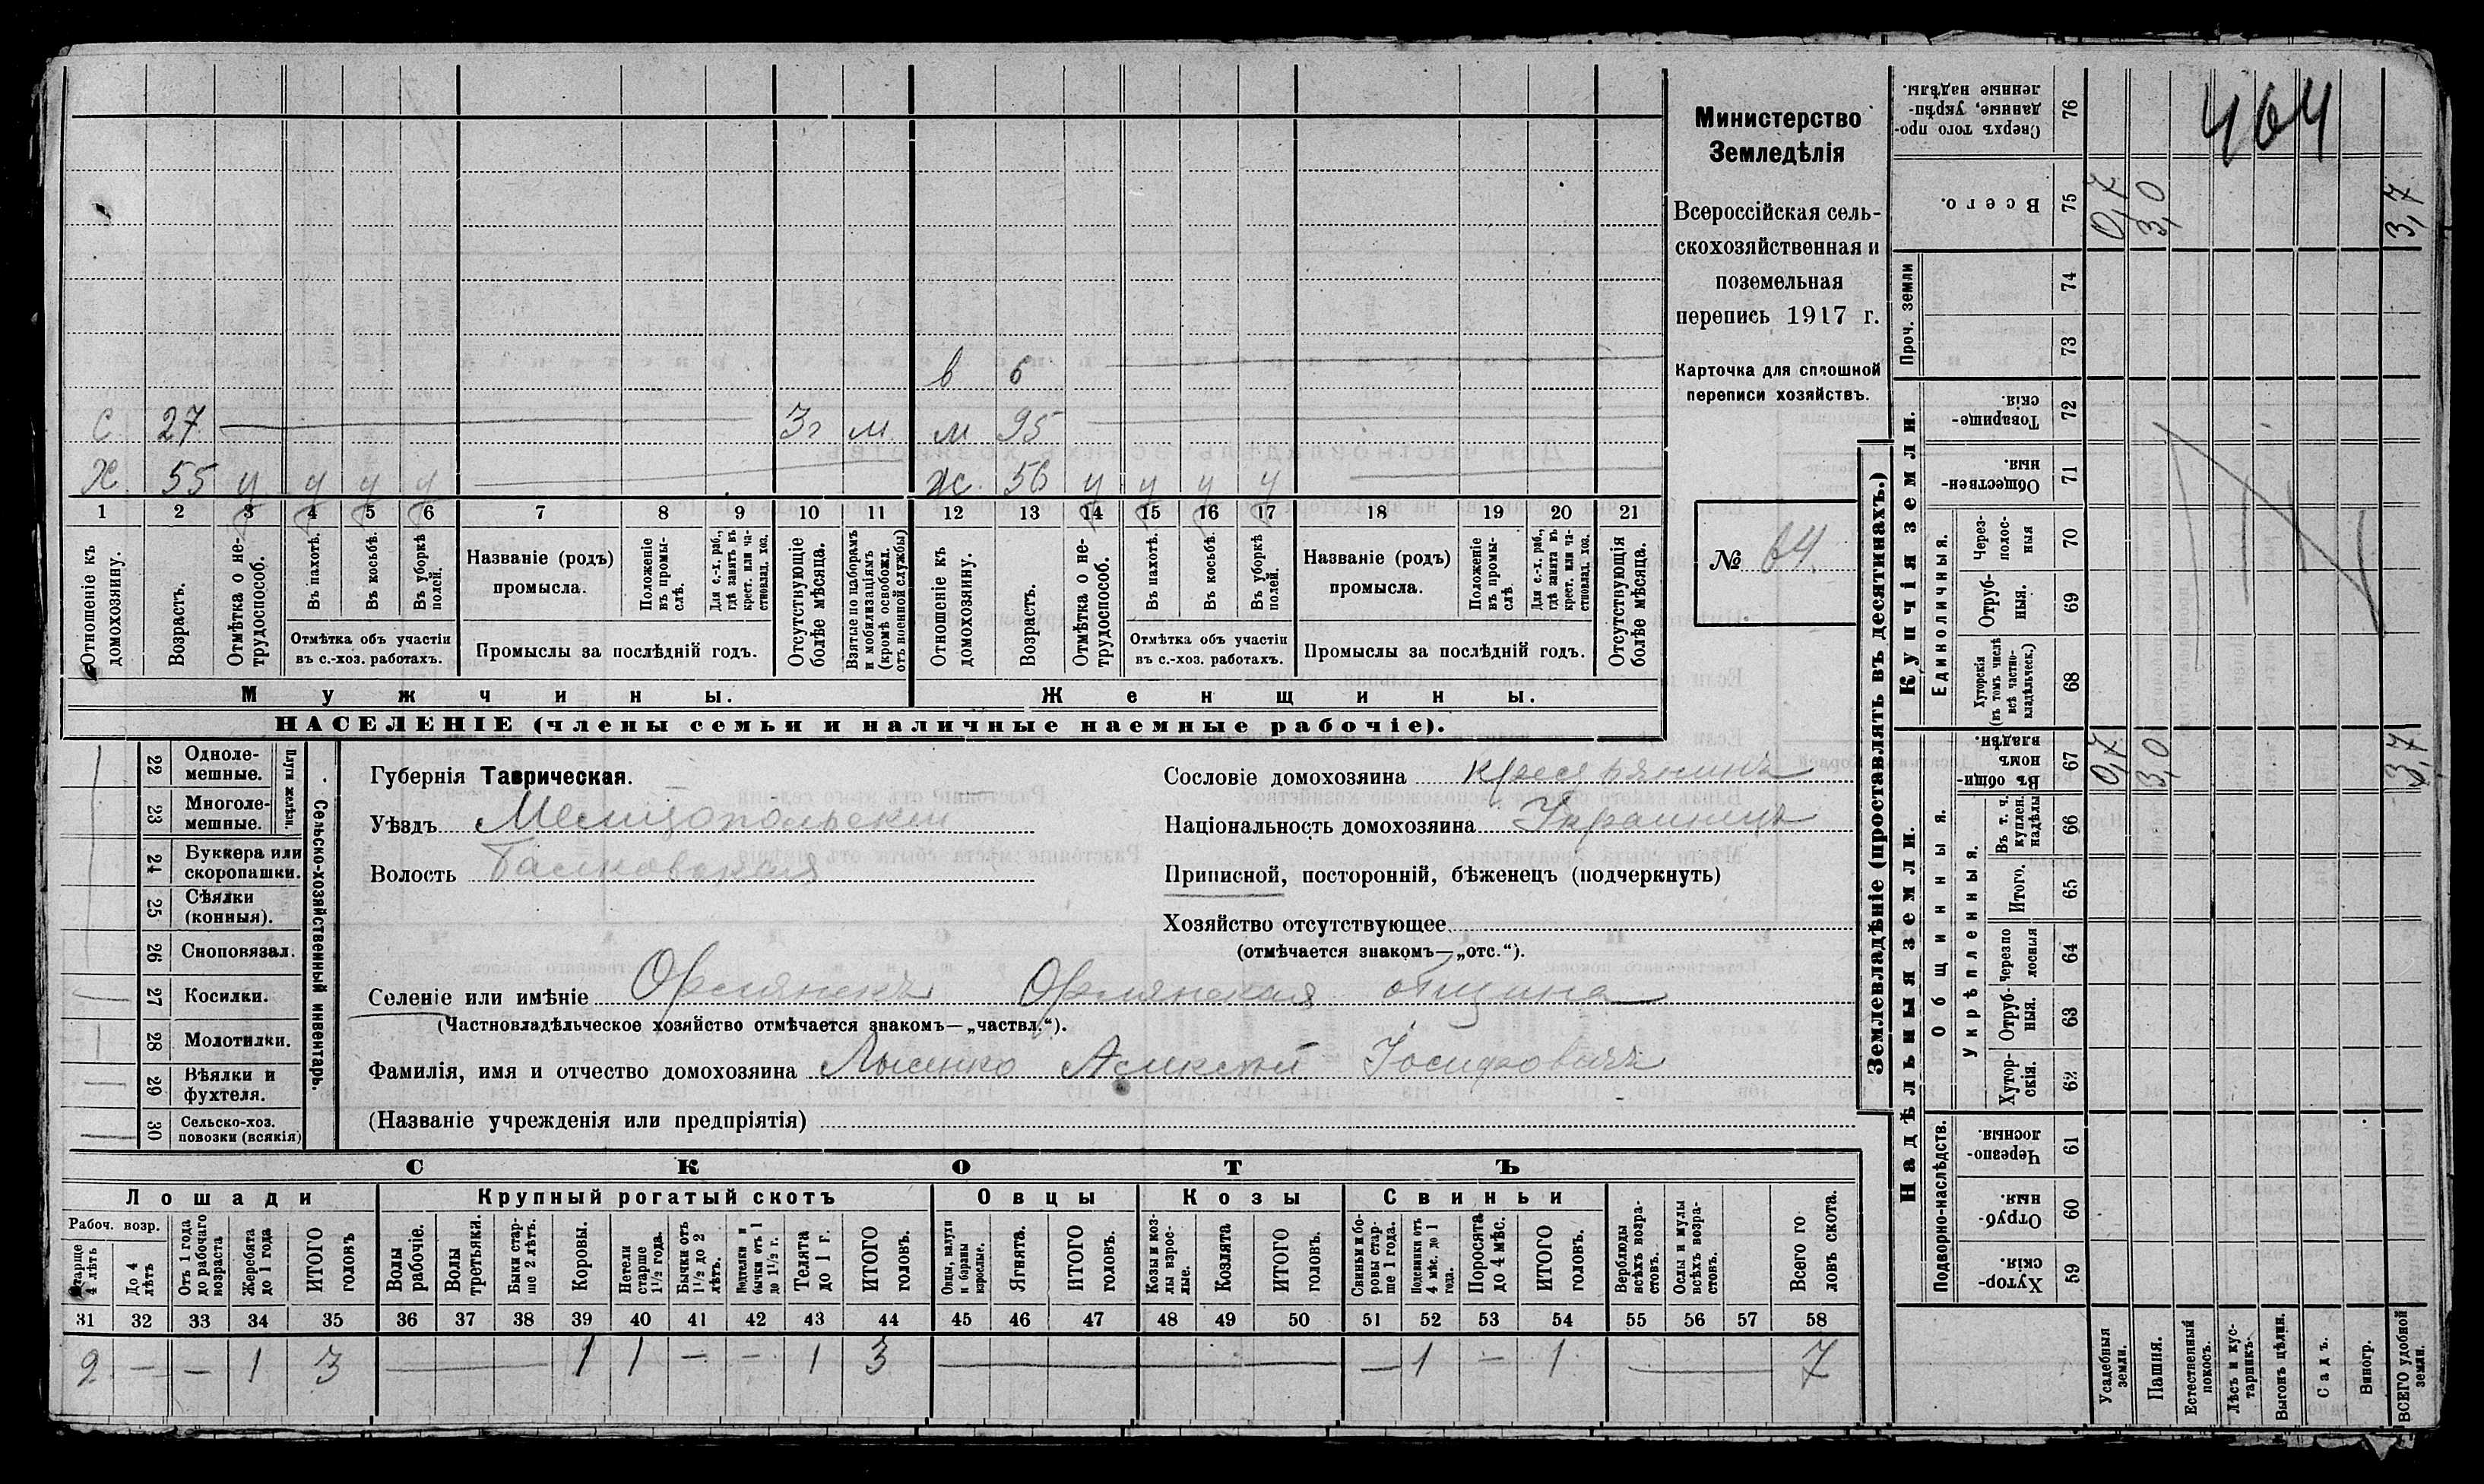 464
Министерство
Земледѣлія
Всероссійская сель-
скохозяйственная и
поземельная
перепись 1917 г.
Карточка для сплошной
переписи хозяйствъ.
№ 64.
в 6
с 27 3г м м 95
х 55 у у у у ж 56 у у у у
1 2 3 4 5 6 7 8 9 10 11 12 13 14 15 16 17 18 19 20 21
Отношеніе къ домохозяину.
Возрастъ.
Отмѣтка о не-трудоспособ.
Въ пахотѣ.
Въ косьбѣ.
Въ уборкѣ полей.
Отмѣтка объ участіи
въ с.-хоз. работахъ.
Названіе (родъ)
промысла.
Положеніе въ промы-слѣ.
Для с.-х. раб., гдѣ занятъ въ крест. или ча-стновлад. хоз.
Промыслы за послѣдній годъ.
Отсутствующіе болѣе мѣсяца.
Взятые по наборамъ и мобилизаціямъ (кромѣ освобожд. отъ военной службы)
Отношеніе къ домохозяину.
Возрастъ.
Отмѣтка о не-трудоспособ.
Въ пахотѣ.
Въ косьбѣ.
Въ уборкѣ полей.
Отмѣтка объ участіи
въ с.-хоз. работахъ.
Названіе (родъ)
промысла.
Положеніе въ промы-слѣ
Для с.-х. раб., гдѣ занята въ крест. или ча-стновлад. хоз.
Промыслы за послѣдній годъ.
Отсутствующія болѣе мѣсяца.
Мужчины.
Женщины.
НАСЕЛЕНІЕ (члены семьи и наличные наемные рабочіе).
22 Одноле-мешные.
23 Многоле-мешные.
Плуги желѣзн.
24 Буккера или скоропашки.
25 Сѣялки (конныя).
26 Сноповязал.
27 Косилки.
28 Молотилки.
29 Вѣялки и фухтеля.
30 Сельско-хоз. повозки (всякія)
Сельско-хозяйственный инвентарь.
Губернія Таврическая.
Уѣздъ Мелитопольскій
Волость Балковская
Сословіе домохозяина крестьянинъ
Національность домохозяина Украинецъ
Приписной, посторонній, бѣженецъ (подчеркнуть)
Хозяйство отсутствующее
(отмѣчается знакомъ—„отс.“).
Селеніе или имѣніе Орлянскъ Орлянская община
(Частновладѣльческое хозяйство отмѣчается знакомъ—„частвл.“).
Фамилія, имя и отчество домохозяина Лысенко Алексѣй Іосифовичъ
(Названіе учрежденія или предпріятія)
СКОТЪ
Лошади
Крупный рогатый скотъ
Овцы
Козы
Свиньи
Рабоч. возр.
Старше 4 лѣтъ
До 4 лѣтъ
Отъ 1 года до рабочаго возраста
Жеребята до 1 года
ИТОГО головъ
Волы рабочіе.
Волы третьяки.
Быки стар-ше 2 лѣтъ.
Коровы.
Нетели старше 1½ года.
Бычки отъ 1½ до 2 лѣтъ.
Подтелки и бычки отъ 1 до 1½ г.
Телята до 1 г.
ИТОГО головъ.
Овцы, валухи и бараны взрослые.
Ягнята.
ИТОГО головъ.
Козы и коз-лы взрос-лые.
Козлята
ИТОГО головъ.
Свиньи и бо-ровы стар-ше 1 года.
Подсвинки отъ 4 мѣс. до 1 года.
Поросята до 4 мѣс.
ИТОГО головъ.
Верблюды всѣхъ возра-стовъ.
Ослы и мулы всѣхъ возра-стовъ.
Всего го ловъ скота.
31 32 33 34 35 36 37 38 39 40 41 42 43 44 45 46 47 48 49 50 51 52 53 54 55 56 57 58
2 — — 1 3 — 1 1 — — 1 3 — — 1 — 1 — 7
Землевладѣніе (проставлять въ десятинахъ.)
Сверхъ того про-данные, укрѣп-ленные надѣлы. 76
Всего. 75 0,7 3,0 3,7
Проч. земли 74 73
Купчія земли.
Товарище-скія. 72
Обществен-ныя. 71
Единоличныя.
Через-полос-ныя 70
Отруб-ныя. 69
Хуторскія (въ томъ числѣ всѣ частно-владѣльческ.) 68
Надѣльныя земли.
Общинныя.
Въ общин-номъ владѣн. 67 0,7 3,0 3,7
Укрѣпленныя.
Въ т. ч. куплен. надѣлы 66
Итого. 65
Черезпо лосныя 64
Отруб-ныя. 63
Хутор-скія. 62
Подворно-наслѣдств.
Черезпо-лосныя. 61
Отруб-ныя. 60
Хутор-скія. 59
Усадебныя земли.
Пашня.
Естественный покосъ.
Лѣсъ и кус-тарникъ.
Выгонъ цѣлин.
Садъ.
Виногр.
ВСЕГО удобной земли.